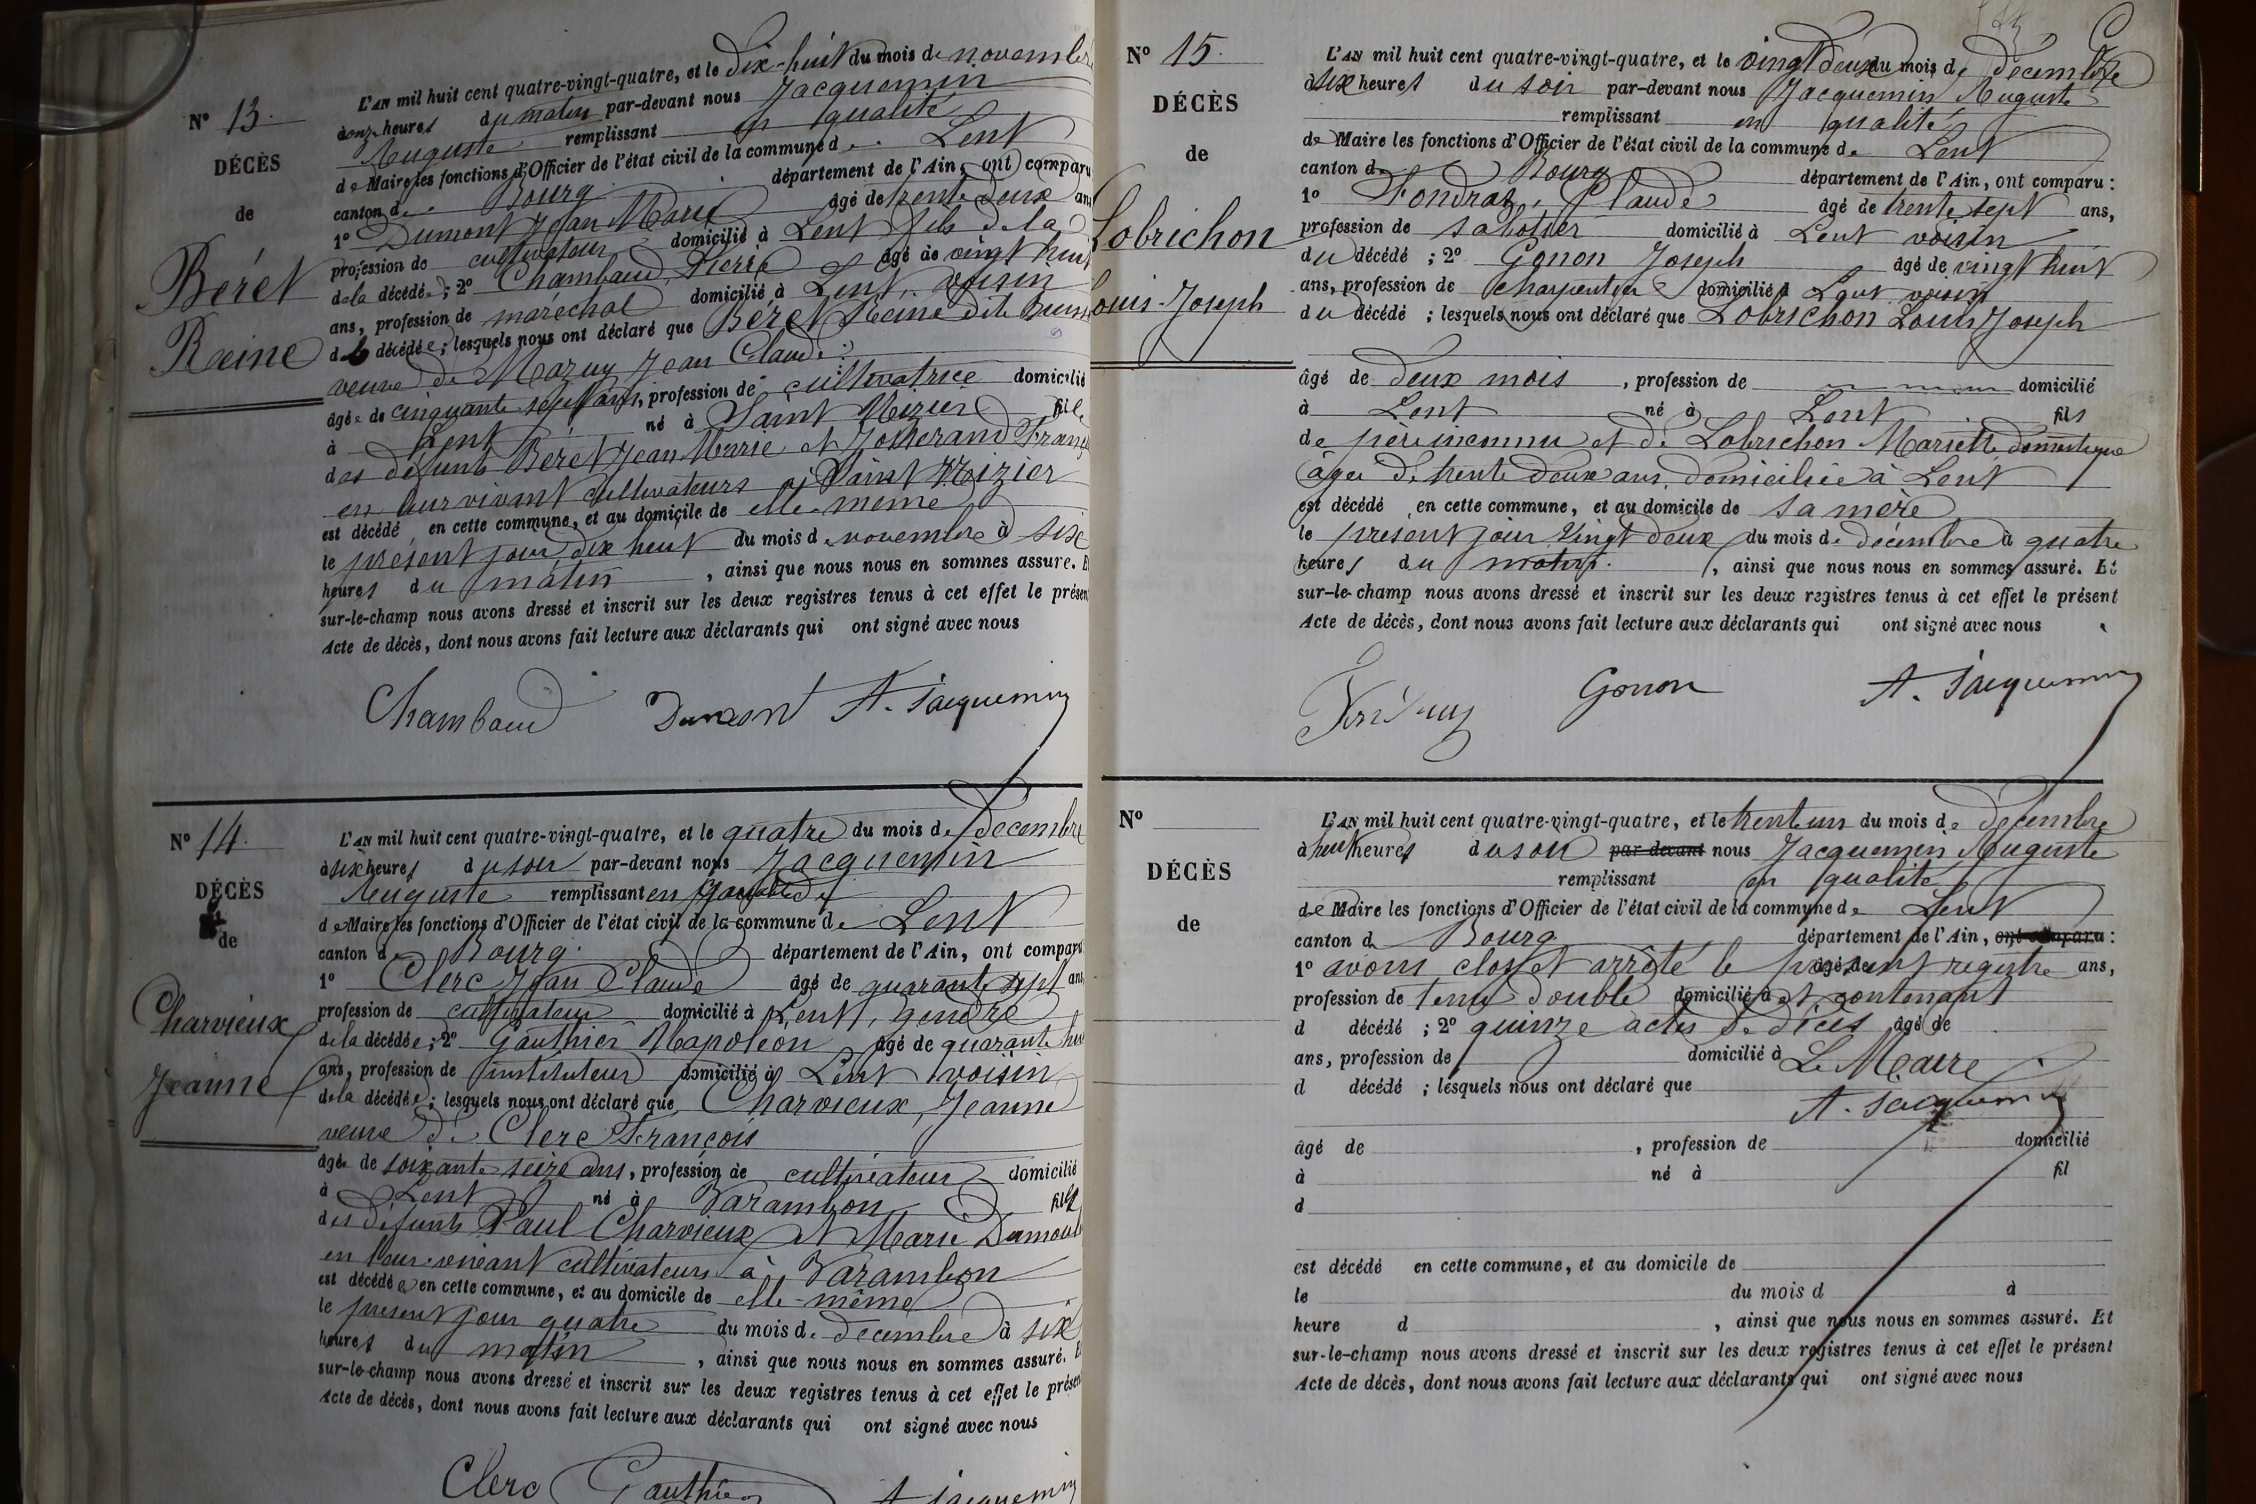 N° 13.
DÉCÈS
de
Béret
Reine
L'AN mil huit cent quatre-vingt-quatre, et le dix-huit du mois de novembre
à onze heures du matin par-devant nous Jacquemin
Auguste remplissant en qualité
de Maire les fonctions d'Officier de l'état civil de la commune de Lent
canton de Bourg département de l'Ain, ont comparu
1° Dumont Jean Marie âgé de trente deux ans
profession de cultivateur domicilié à Lent fils de la
de la décédée; 2° Chambaud Pierre âgé de vingt huit
ans, profession de maréchal domicilié à Lent, voisin
de la décédée; lesquels nous ont déclaré que Béret Reine dite
veuve de Mazuy Jean Claude
âgée de cinquante sept ans, profession de cultivatrice domicilié
à Lent né à Saint Nizier fille
des défunts Béret Jean Marie et Josserand
en leur vivant cultivateurs à Saint Nizier
est décédé en cette commune, et au domicile de elle-même
le présent jour dix huit du mois de novembre à six
heures du matin, ainsi que nous nous en sommes assuré. E
sur-le-champ nous avons dressé et inscrit sur les deux registres tenus à cet effet le présen
Acte de décès, dont nous avons fait lecture aux déclarants qui ont signé avec nous
Chambaud Dumont A. Jacquemin
N° 14.
DÉCÈS
de
Charvieux
Jeanne
L'AN mil huit cent quatre-vingt-quatre, et le quatre du mois de décembre
à six heures du soir par-devant nous Jacquemin
Auguste remplissant en qualité de
de Maire les fonctions d'Officier de l'état civil de la commune de Lent
canton de Bourg. département de l'Ain, ont comparu
1° Clerc Jean Claude âgé de quarante sept ans
profession de cultivateur domicilié à Lent, gendre
de la décédée; 2° Gauthier Napoléon âgé de quarante
ans, profession de instituteur domicilié à Lent voisin
de la décédée; lesquels nous ont déclaré que Charvieux, Jeanne
veuve de Clerc François
âgée de soixante seize ans, profession de cultivateur domicilié
à Lent né à Varambon fille
des défunts Paul Charvieux et Marie Dumoul
en leur vivant cultivateurs à Varambon
est décédée en cette commune, et au domicile de elle-même
le présent jour quatre du mois de décembre à six
heures du matin, ainsi que nous nous en sommes assuré. E
sur-le-champ nous avons dressé et inscrit sur les deux registres tenus à cet effet le présen
Acte de décès, dont nous avons fait lecture aux déclarants qui ont signé avec nous
Clerc Gauthier A Jacquemin
N° 15.
DÉCÈS
de
Lobrichon
Louis-Joseph
L'AN mil huit cent quatre-vingt-quatre, et le vingt deux du mois de décembre
à six heures du soir par-devant nous Jacquemin Auguste
remplissant en qualité
de Maire les fonctions d'Officier de l'état civil de la commune de Lent
canton de Bourg département de l'Ain, ont comparu:
1° Fondraz, Claude âgé de trente sept ans,
profession de sabotier domicilié à Lent voisin
du décédé; 2° Gonon Joseph âgé de vingt huit
ans, profession de charpentier domicilié à Lent voisin
du décédé; lesquels nous ont déclaré que Lobrichon Louis Joseph
âgé de deux mois, profession de domicilié
à Lent né à Lent fils
de père inconnu et de Lobrichon Mariette domestique
âgée de trente deux ans, domiciliée à Lent
est décédé en cette commune, et au domicile de sa mère
le présent jour vingt deux du mois de décembre à quatre
heures du matin., ainsi que nous nous en sommes assuré. Et
sur-le-champ nous avons dressé et inscrit sur les deux registres tenus à cet effet le présent
Acte de décès, dont nous avons fait lecture aux déclarants qui ont signé avec nous
Gonon A. Jacquemin
N°
DÉCÈS
de
L'AN mil huit cent quatre-vingt-quatre, et le trente un du mois de décembre
à huit heures du soir par-devant nous Jacquemin Auguste
remplissant en qualité
de Maire les fonctions d'Officier de l'état civil de la commune de Lent
canton de Bourg département de l'Ain, ont comparu:
1° avons clos et arrêté le présent registre âgé de ans,
profession de tenu double domicilié à et contenant
d décédé; 2° quinze actes de décès âgé de
ans, profession de domicilié à Le Maire
d décédé; lesquels nous ont déclaré que
A. Jacquemin
âgé de, profession de domicilié
à né à fil
d
est décédé en cette commune, et au domicile de
le du mois d à
heure d, ainsi que nous nous en sommes assuré. Et
sur-le-champ nous avons dressé et inscrit sur les deux registres tenus à cet effet le présent
Acte de décès, dont nous avons fait lecture aux déclarants qui ont signé avec nous